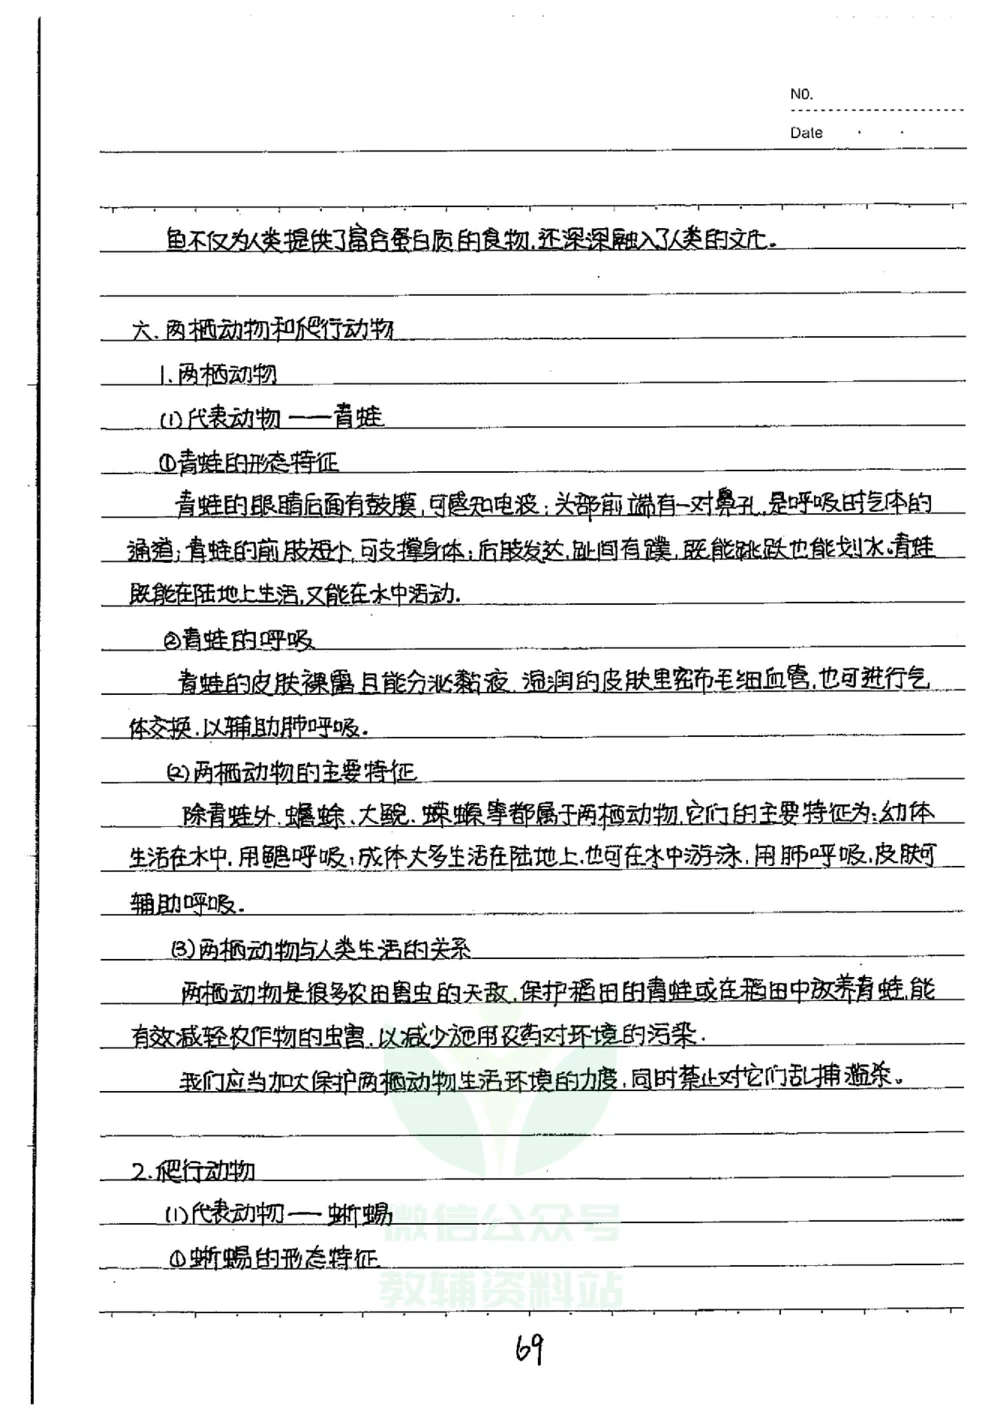 NO.
Date
鱼不仅为人类提供了富含蛋白质的食物,还深深融入了人类的文化。
六.两栖动物和爬行动物
1.两栖动物
(1)代表动物——青蛙
①青蛙的形态特征
青蛙的眼睛后面有鼓膜,可感知电波;头部前端有一对鼻孔,是呼吸时气体的
通道;青蛙的前肢短小,可支撑身体;后肢发达,趾间有蹼,既能跳跃也能划水。青蛙
既能在陆地上生活,又能在水中活动.
②青蛙的呼吸
青蛙的皮肤裸露且能分泌黏液.湿润的皮肤里密布毛细血管,也可进行气
体交换,以辅助肺呼吸。
(2)两栖动物的主要特征
除青蛙外,蟾蜍、大鲵、蝾螈等都属于两栖动物,它们的主要特征为:幼体
生活在水中,用鳃呼吸;成体大多生活在陆地上,也可在水中游泳,用肺呼吸,皮肤可
辅助呼吸.
(3)两栖动物与人类生活的关系
两栖动物是很多农田害虫的天敌,保护稻田的青蛙或在稻田中放养青蛙,能
有效减轻农作物的虫害,以减少施用农药对环境的污染.
我们应当加大保护两栖动物生活环境的力度,同时禁止对它们乱捕滥杀。
2.爬行动物
(1)代表动物——蜥蜴
①蜥蜴的形态特征
微信公众号
教辅资料站
69